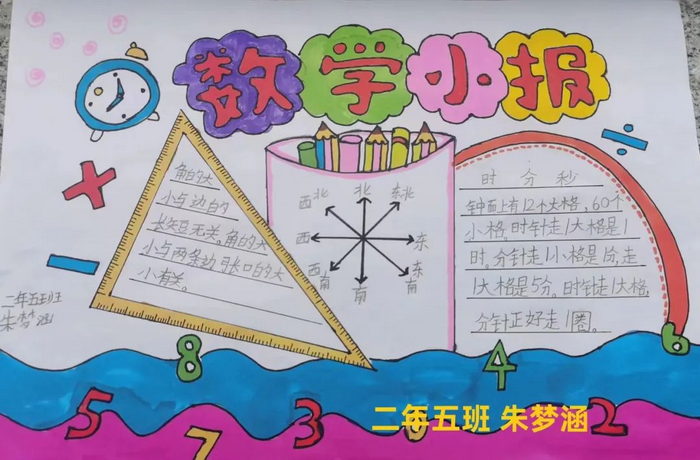 数学小报
角的大
小与边的
长短无关。角的大
小与两条边张口的大
小有关。
西北 北 东北
西 东
西南 南 东南
时 分 秒
钟面上有12个大格、60个
小格。时针走1大格是1
时。分针走1小格是1分,走
1大格是5分。时针走1大格,
分针正好走1圈。
二年五班
朱梦涵
× ÷ −
8 4 6
5 7 3 2
二年五班 朱梦涵